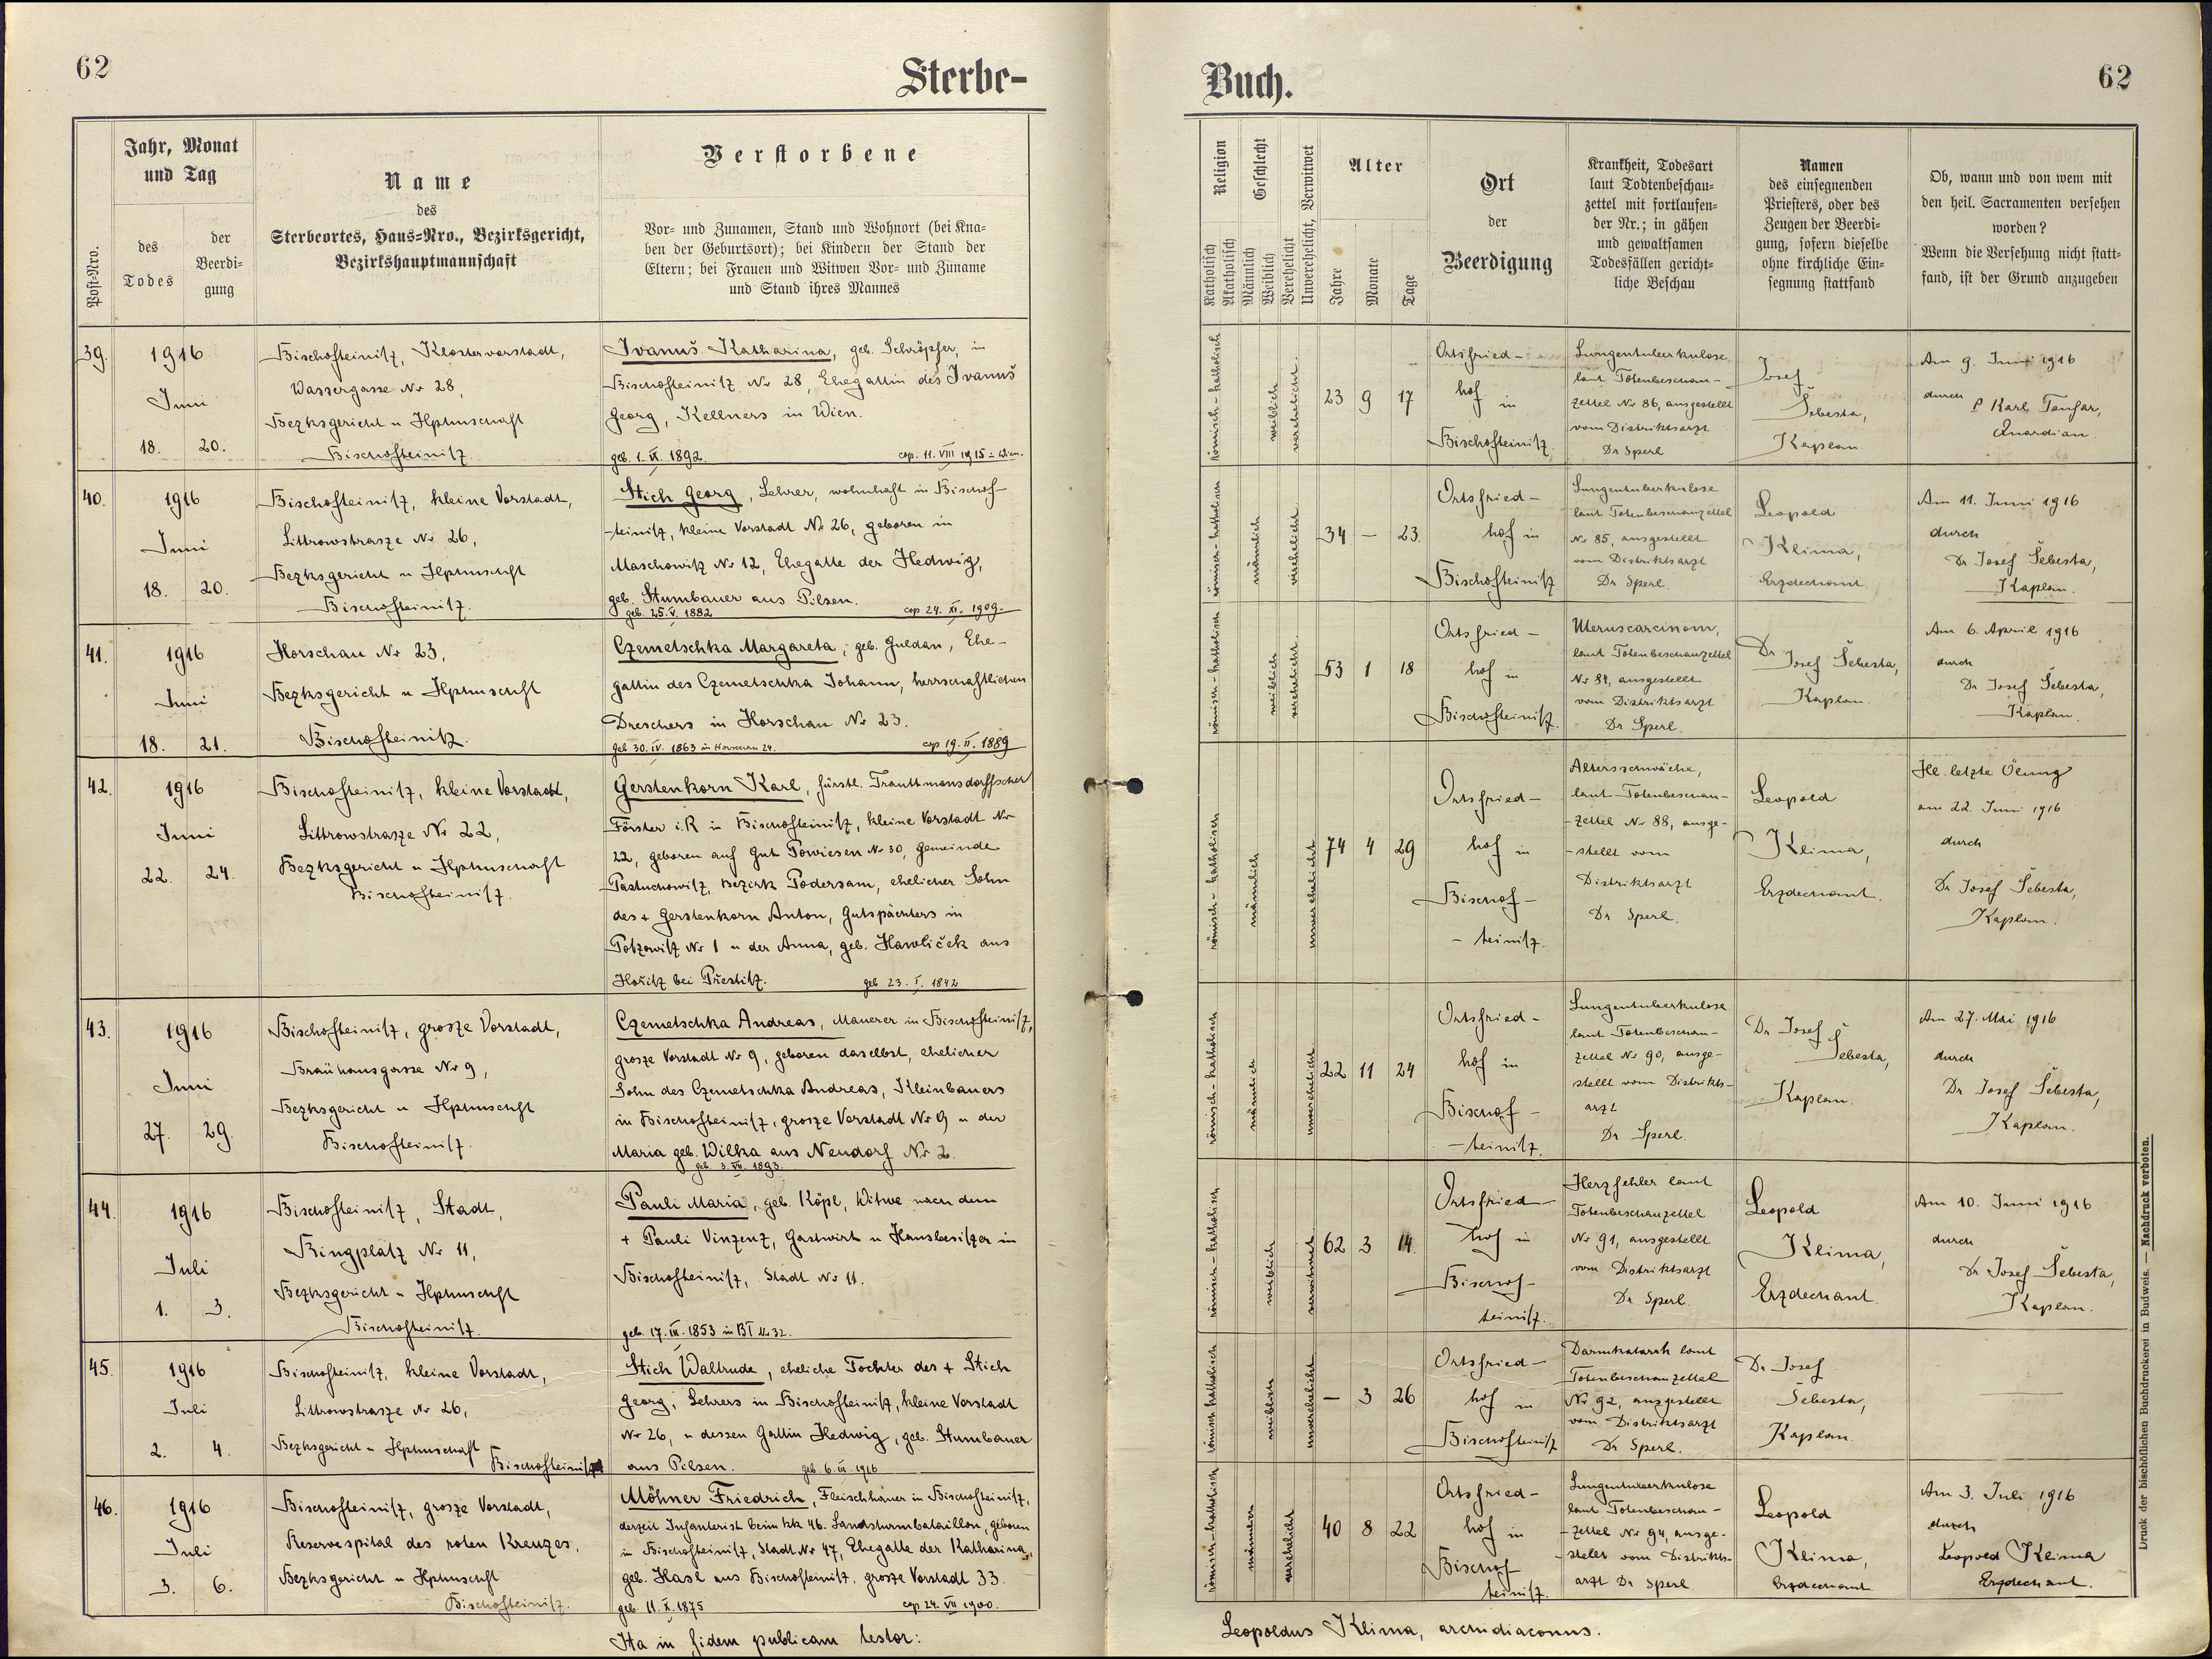 62
Sterbe-
Jahr, Monat
und Tag
Post-Nro.
des
Todes
der
Beerdi-
gung
Name
des
Sterbeortes, Haus-Nro., Bezirksgericht,
Bezirkshauptmannschaft
Verstorbene
Vor- und Zunamen, Stand und Wohnort (bei Kna-
ben der Geburtsort); bei Kindern der Stand der
Eltern; bei Frauen und Witwen Vor- und Zuname
und Stand ihres Mannes
39.
1916
Juni
18. 20.
Bischofteinitz, Klostervorstadt,
Wassergasse Nr 28,
Bezksgericht u Hptmschaft
Bischofteinitz.
Ivanuš Katharina, geb. Schröpfer, in
Bischofteinitz Nr 28, Ehegattin des Ivanuš
Georg, Kellners in Wien.
geb. 1. IX. 1892. cop. 11. VIII 1915 in Wien.
40.
1916
Juni
18. 20.
Bischofteinitz, kleine Vorstadt,
Littrowstrasze Nr 26,
Bezksgericht u Hptmschft
Bischofteinitz.
Stich Georg, Lehrer, wohnhaft in Bischof-
-teinitz, kleine Vorstadt Nr 26, geboren in
Maschowitz Nr 12, Ehegatte der Hedwig,
geb. Stumbauer aus Pilsen.
geb. 25. V. 1882 cop 24. XI. 1909.
41.
1916
Juni
18. 21.
Horschau Nr 23,
Bezksgericht u Hptmschft
Bischofteinitz.
Czemetschka Margareta, geb. Guldan, Ehe-
gattin des Czemetschka Johann, herrschaftlichen
Dreschers in Horschau Nr 23.
geb 30. IV. 1863 in Horschau 24. cop 19. II. 1889
42.
1916
Juni
22. 24.
Bischofteinitz, kleine Vorstadt,
Littrowstrasze Nr 22,
Bezksgericht u Hptmschaft
Bischofteinitz.
Gerstenkorn Karl, fürstl. Trauttmansdorffscher
Förster i.R in Bischofteinitz, kleine Vorstadt Nr
22, geboren auf Gut Powiesen Nr 30, Gemeinde
Pastuchowitz, Bezirk Podersam, ehelicher Sohn
des + Gerstenkorn Anton, Gutspächters in
Potzowitz Nr 1 u der Anna, geb. Hawliček aus
Hořitz bei Přestitz. geb 23. I. 1842
43.
1916
Juni
27. 29.
Bischofteinitz, grosze Vorstadt,
Bräuhausgasse Nr 9,
Bezksgericht u Hptmschft
Bischofteinitz.
Czemetschka Andreas, Maurer in Bischofteinitz,
grosze Vorstadt Nr 9, geboren daselbst, ehelicher
Sohn des Czemetschka Andreas, Kleinbauers
in Bischofteinitz, grosze Vorstadt Nr 9 u der
Maria geb. Wilka aus Neudorf Nr 2.
geb. 3. VII. 1893.
44.
1916
Juli
1. 3.
Bischofteinitz, Stadt,
Ringplatz Nr 11,
Bezksgericht u Hptmschft
Bischofteinitz.
Pauli Maria, geb. Köpl, Witwe nach dem
+ Pauli Vinzenz, Gastwirt u Hausbesitzer in
Bischofteinitz, Stadt Nr 11.
geb. 17. III. 1853 in BT Nr 32.
45.
1916
Juli
2. 4.
Bischofteinitz, kleine Vorstadt,
Littrowstrasze Nr 26,
Bezksgericht u Hptmschaft
Bischofteinitz
Stich Waltrude, eheliche Tochter des + Stich
Georg, Lehrers in Bischofteinitz, kleine Vorstadt
Nr 26, u dessen Gattin Hedwig, geb. Stumbauer
aus Pilsen. geb. 6. III. 1916
46.
1916
Juli
3. 6.
Bischofteinitz, grosze Vorstadt,
Reservespital des roten Kreuzes,
Bezksgericht u Hptmschft
Bischofteinitz.
Möhner Friedrich, Fleischhauer in Bischofteinitz,
derzeit Infanterist beim kk 46. Landsturmbataillon, geboren
in Bischofteinitz, Stadt Nr 47, Ehegatte der Katharina,
geb. Hasl aus Bischofteinitz, grosze Vorstadt 33.
geb. 11. X. 1875 cop 24. VII 1900.
Ita in fidem publicam testor:
Buch.
62
Religion
Katholisch
Akatholisch
Geschlecht
Männlich
Weiblich
Verehelicht
Unverehelicht, Verwitwet
Alter
Jahre
Monate
Tage
Ort
der
Beerdigung
Krankheit, Todesart
laut Todtenbeschau-
zettel mit fortlaufen-
der Nr.; in gähen
und gewaltsamen
Todesfällen gericht-
liche Beschau
Namen
des einsegnenden
Priesters, oder des
Zeugen der Beerdi-
gung, sofern dieselbe
ohne kirchliche Ein-
segnung stattfand
Ob, wann und von wem mit
den heil. Sacramenten versehen
worden?
Wenn die Versehung nicht statt-
fand, ist der Grund anzugeben
römisch-katholisch
weiblich
verehelicht
23 9 17
Ortsfried-
hof in
Bischofteinitz
Lungentuberkulose
laut Totenbeschau-
zettel Nr 86, ausgestellt
vom Distriktsarzt
Dr Sperl
Josef
Šebesta,
Kaplan
Am 9. Juni 1916
durch P Karl Toušar,
Quardian
römisch-katholisch
männlich
verehelicht
34 – 23.
Ortsfried-
hof in
Bischofteinitz
Lungentuberkulose
laut Totenbeschauzettel
Nr 85, ausgestellt
vom Distriktsarzt
Dr Sperl.
Leopold
Klima,
Erzdechant.
Am 11. Juni 1916
durch
Dr Josef Šebesta,
Kaplan.
römisch-katholisch
weiblich
verehelicht
53 1 18
Ortsfried-
hof in
Bischofteinitz.
Uteruscarcinom,
laut Totenbeschauzettel
Nr 84, ausgestellt
vom Distriktsarzt
Dr Sperl.
Dr Josef Šebesta,
Kaplan.
Am 6. April 1916
durch
Dr Josef Šebesta,
Kaplan.
römisch-katholisch
männlich
unverehelicht
74 4 29
Ortsfried-
hof in
Bischof-
-teinitz.
Altersschwäche,
laut Totenbeschau-
-zettel Nr 88, ausge-
-stellt vom
Distriktsarzt
Dr Sperl.
Leopold
Klima,
Erzdechant.
Hl. letzte Ölung
am 22. Juni 1916
durch
Dr Josef Šebesta,
Kaplan.
römisch-katholisch
männlich
unverehelicht
22 11 24
Ortsfried-
hof in
Bischof-
-teinitz.
Lungentuberkulose
laut Totenbeschau-
zettel Nr 90, ausge-
stellt vom Distrikts-
arzt
Dr Sperl.
Dr Josef
Šebesta,
Kaplan.
Am 27. Mai 1916
durch
Dr Josef Šebesta,
Kaplan.
römisch-katholisch
weiblich
verwitwet
62 3 14.
Ortsfried-
hof in
Bischof-
teinitz.
Herzfehler laut
Totenbeschauzettel
Nr 91, ausgestellt
vom Distriktsarzt
Dr Sperl.
Leopold
Klima,
Erzdechant.
Am 10. Juni 1916
durch
Dr Josef Šebesta,
Kaplan.
römisch katholisch
weiblich
unverehelicht
– 3 26
Ortsfried-
hof in
Bischofteinitz
Darmkatarrh laut
Totenbeschauzettel
Nr 92, ausgestellt
vom Distriktsarzt
Dr Sperl.
Dr Josef
Šebesta,
Kaplan.
römisch-katholisch
männlich
verehelicht
40 8 22
Ortsfried-
hof in
Bischof
teinitz.
Lungentuberkulose
laut Totenbeschau-
-zettel Nr 94, ausge-
-stellt vom Distrikts-
arzt Dr Sperl
Leopold
Klima,
Erzdechant.
Am 3. Juli 1916
durch
Leopold Klima
Erzdechant.
Leopoldus Klima, archidiaconus.
Druck der bischöflichen Buchdruckerei in Budweis. — Nachdruck verboten.